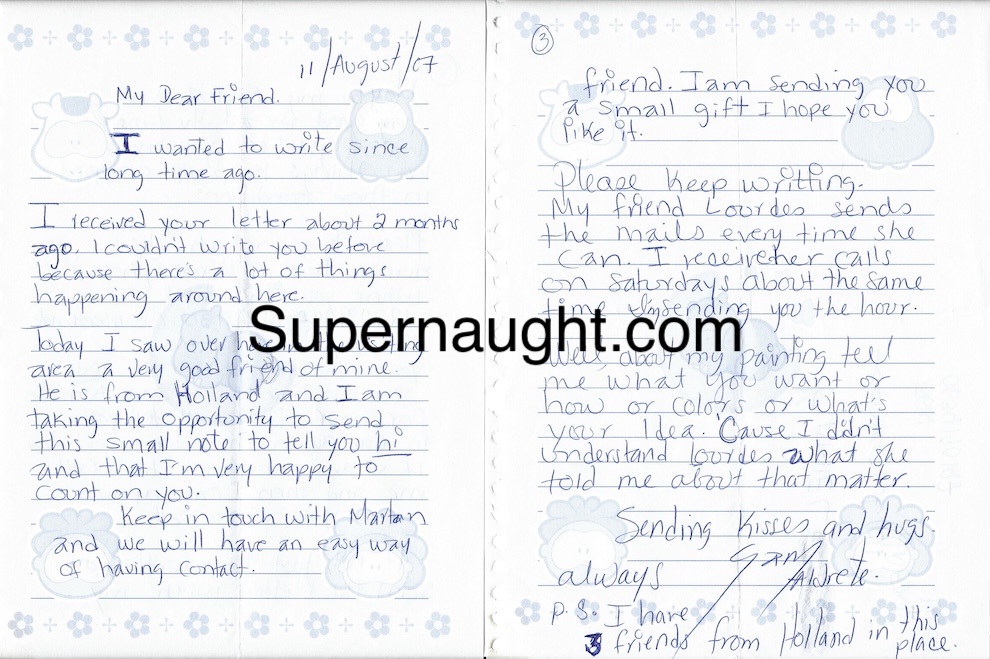 11/August/07
My Dear Friend.
I wanted to write since
long time ago.
I received your letter about 2 months
ago. I couldn't write you before
because there's a lot of things
happening around here.
Today I saw over here in the visiting
area a very good friend of mine.
He is from Holland and I am
taking the opportunity to send
this small note to tell you hi
and that I'm very happy to
count on you.
Keep in touch with Martan
and we will have an easy way
of having contact.
3
friend. I am sending you
a small gift I hope you
like it.
Please keep writting.
My friend Lourdes sends
the mails every time she
can. I receive her calls
on Saturdays about the same
time I'm sending you the hour.
Well about my painting tell
me what you want or
how or colors or what's
your idea. 'Cause I didn't
understand Lourdes what she
told me about that matter.
Sending kisses and hugs.
always
P.S. I have
3 friends from Holland in this
place.
Supernaught.com